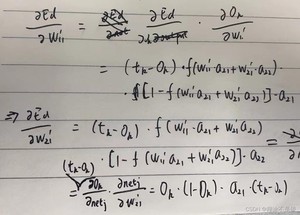 ∂Ed/∂w₁₁' = ∂Ed/∂O_k · ∂O_k/∂w₁'
= (t_k - O_k) · f(w₁₁'·a₂₁ + w₂₁'·a₂₂)·
· [1 - f(w₁₁' a₂₁ + w₂₁' a₂₂)]·a₂₁
⇒ ∂Ed/∂w₂₁' = (t_k - O_k) · f(w₁₁'·a₂₁ + w₂₁' a₂₂)
· [1 - f(w₁₁' a₂₁ + w₂₁' a₂₂)]·a₂₂
(t_k - O_k)
= ∂O_k/∂net_j · ∂net_j/∂w₂₁' = O_k·(1-O_k)·a₂₁·(t_k -